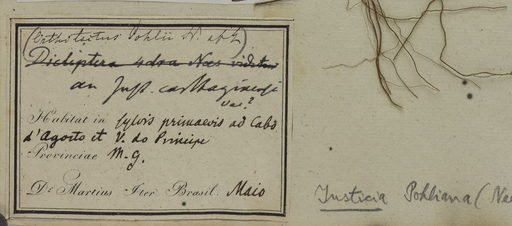 (Orthotactus Pohlii N. ab E.)
Dicliptera 4dra Nees videtur
an Just. carthaginensi
var?
Habitat in sylvis primaevis ad Cabo
d'Agosto et V. do Principe
Provinciae M. G.
Dr. Martius Iter Brasil. Maio
Justicia Pohliana (Nee